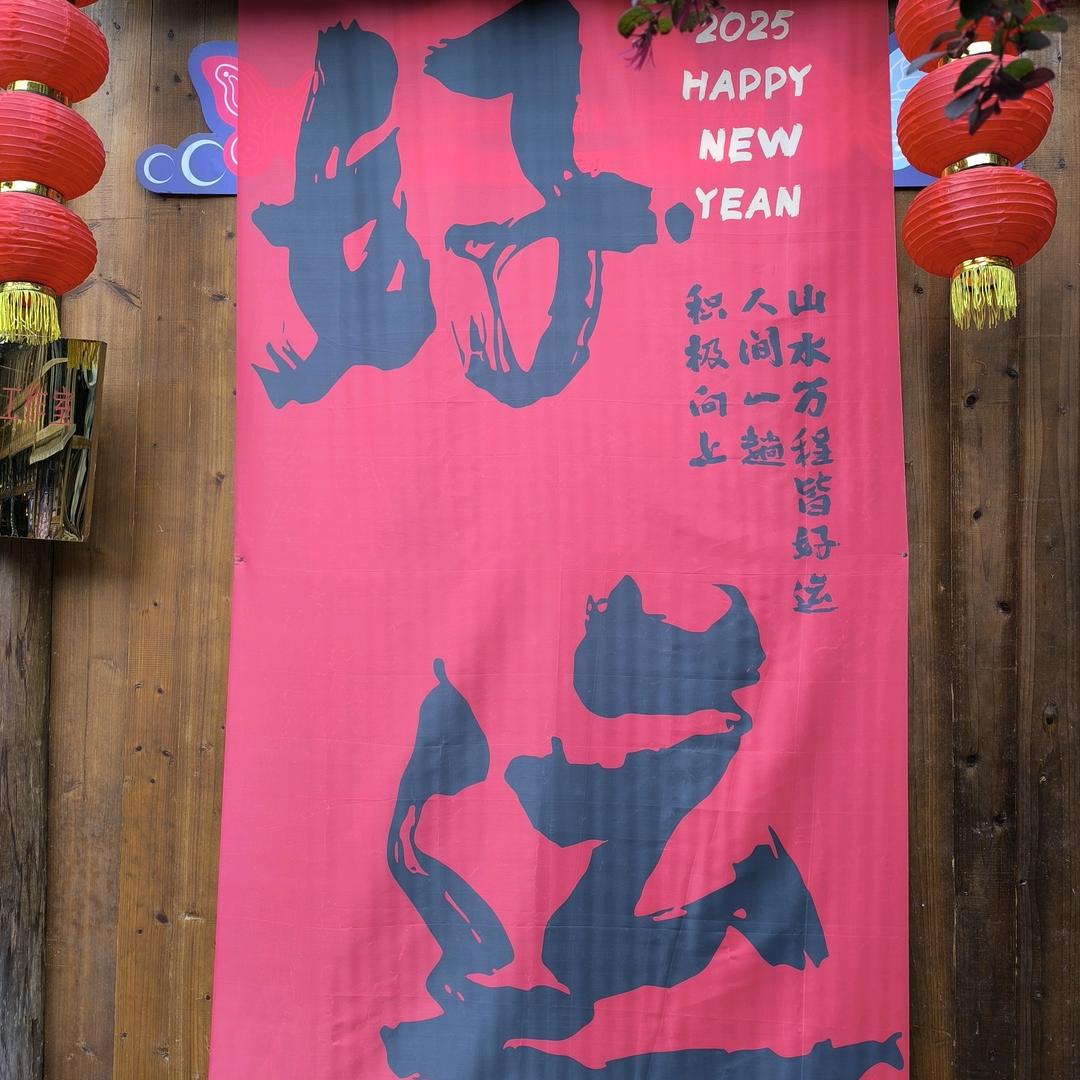 好运
2025
HAPPY
NEW
YEAN
山水万程皆好运
人间一趟
积极向上